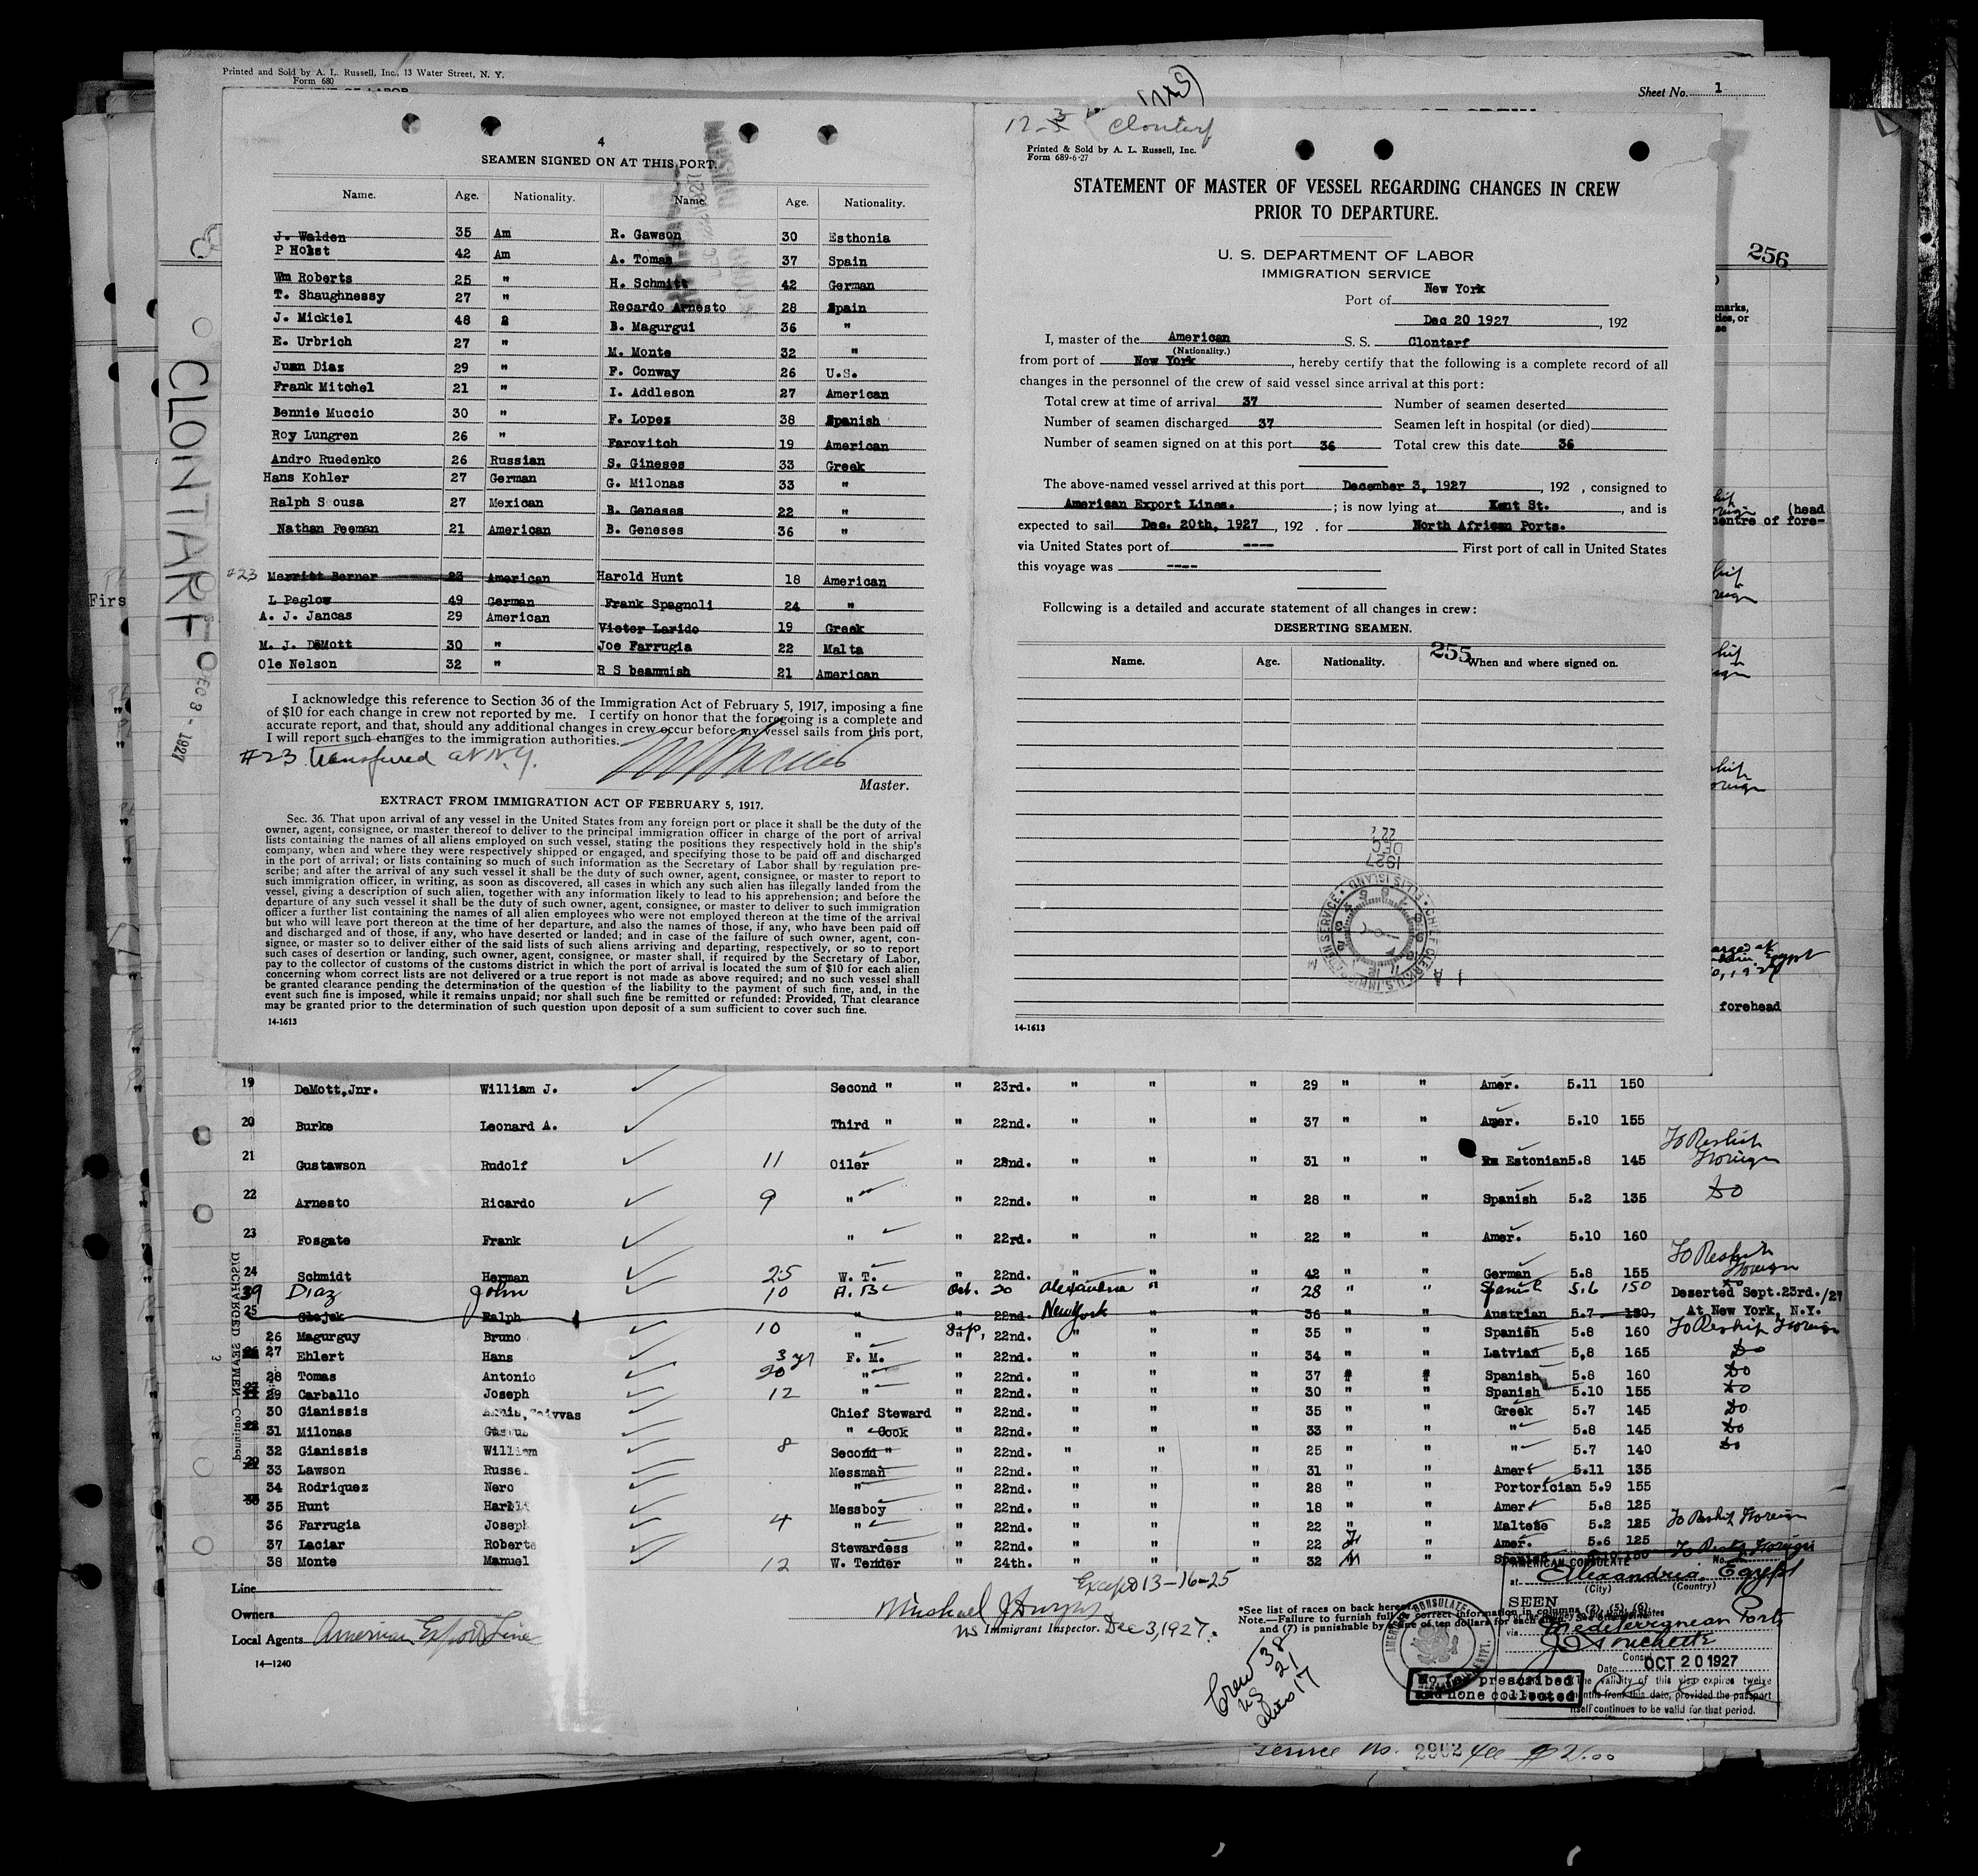 Printed and Sold by A. L. Russell, Inc., 13 Water Street, N. Y.
Form 680
Sheet No. 1
256
CLONTARF
DEC 3 - 1927
4
SEAMEN SIGNED ON AT THIS PORT.
Name. Age. Nationality. Name. Age. Nationality.
J. Walden 35 Am R. Gawson 30 Esthonia
P Holst 42 Am A. Tomas 37 Spain
Wm Roberts 25 " H. Schmitt 42 German
T. Shaughnessy 27 " Recardo Arnesto 28 Spain
J. Mickiel 48 B. Magurgui 36 "
E. Urbrich 27 " M. Monte 32 "
Juan Diaz 29 " F. Conway 26 U.S.
Frank Mitchel 21 " I. Addleson 27 American
Bennie Muccio 30 " F. Lopez 38 Spanish
Roy Lungren 26 " Farovitch 19 American
Andro Ruedenko 26 Russian S. Gineses 33 Greek
Hans Kohler 27 German G. Milonas 33 "
Ralph Scousa 27 Mexican B. Geneses 22 "
Nathan Feeman 21 American B. Geneses 36 "
#23 Merritt Berner 23 American Harold Hunt 18 American
L Peglow 49 German Frank Spagnoli 24 "
A. J. Jancas 29 American Victor Larido 19 Greek
M. J. DeMott 30 " Joe Farrugia 22 Malta
Ole Nelson 32 " R S beammish 21 American
I acknowledge this reference to Section 36 of the Immigration Act of February 5, 1917, imposing a fine
of $10 for each change in crew not reported by me. I certify on honor that the foregoing is a complete and
accurate report, and that, should any additional changes in crew occur before my vessel sails from this port,
I will report such changes to the immigration authorities.
#23 transferred at N.Y.
Master.
EXTRACT FROM IMMIGRATION ACT OF FEBRUARY 5, 1917.
Sec. 36. That upon arrival of any vessel in the United States from any foreign port or place it shall be the duty of the
owner, agent, consignee, or master thereof to deliver to the principal immigration officer in charge of the port of arrival
lists containing the names of all aliens employed on such vessel, stating the positions they respectively hold in the ship's
company, when and where they were respectively shipped or engaged, and specifying those to be paid off and discharged
in the port of arrival; or lists containing so much of such information as the Secretary of Labor shall by regulation pre-
scribe; and after the arrival of any such vessel it shall be the duty of such owner, agent, consignee, or master to report to
such immigration officer, in writing, as soon as discovered, all cases in which any such alien has illegally landed from the
vessel, giving a description of such alien, together with any information likely to lead to his apprehension; and before the
departure of any such vessel it shall be the duty of such owner, agent, consignee, or master to deliver to such immigration
officer a further list containing the names of all alien employees who were not employed thereon at the time of the arrival
but who will leave port thereon at the time of her departure, and also the names of those, if any, who have been paid off
and discharged and of those, if any, who have deserted or landed; and in case of the failure of such owner, agent, con-
signee, or master so to deliver either of the said lists of such aliens arriving and departing, respectively, or so to report
such cases of desertion or landing, such owner, agent, consignee, or master shall, if required by the Secretary of Labor,
pay to the collector of customs of the customs district in which the port of arrival is located the sum of $10 for each alien
concerning whom correct lists are not delivered or a true report is not made as above required; and no such vessel shall
be granted clearance pending the determination of the question of the liability to the payment of such fine, and, in the
event such fine is imposed, while it remains unpaid; nor shall such fine be remitted or refunded: Provided, That clearance
may be granted prior to the determination of such question upon deposit of a sum sufficient to cover such fine.
14-1613
12-3 Clontarf
Printed & Sold by A. L. Russell, Inc.
Form 689-6-27
STATEMENT OF MASTER OF VESSEL REGARDING CHANGES IN CREW
PRIOR TO DEPARTURE.
U. S. DEPARTMENT OF LABOR
IMMIGRATION SERVICE
Port of New York
Dec 20 1927, 192
I, master of the American S. S. Clontarf
(Nationality.)
from port of New York, hereby certify that the following is a complete record of all
changes in the personnel of the crew of said vessel since arrival at this port:
Total crew at time of arrival 37 Number of seamen deserted
Number of seamen discharged 37 Seamen left in hospital (or died)
Number of seamen signed on at this port 36 Total crew this date 36
The above-named vessel arrived at this port December 3, 1927, 192 , consigned to
American Export Lines. ; is now lying at Kent St. , and is
expected to sail Dec. 20th, 1927, 192 . for North African Ports.
via United States port of ---- First port of call in United States
this voyage was ----
Following is a detailed and accurate statement of all changes in crew:
DESERTING SEAMEN.
255
Name. Age. Nationality. When and where signed on.
1927
DEC
22
CHIEF CLERK U.S. IMMIGRATION SERVICE ELLIS ISLAND
14-1613
(head
centre of fore-
forehead
19 DeMott,Jnr. William J. Second " " 23rd. " " " 29 " " Amer. 5.11 150
20 Burke Leonard A. Third " " 22nd. " " " 37 " " Amer. 5.10 155
21 Gustawson Rudolf 11 Oiler " 22nd. " " " 31 " " Estonian 5.8 145 To Reship Foreign
22 Arnesto Ricardo 9 " " 22nd. " " " 28 " " Spanish 5.2 135 Do
23 Fosgate Frank " " 22rd. " " " 22 " " Amer. 5.10 160
24 Schmidt Herman 25 W. T. " 22nd. " " " 42 " " German 5.8 155 To Reship Foreign
39 Diaz John 10 A.B. Oct. 20 Alexandria " " 28 " " Spanish 5.6 150 Do
25 Ralph " 22nd. New York " " 36 " " Austrian 5.7 150 Deserted Sept.23rd./27 At New York, N.Y.
26 Magurguy Bruno 10 " Sep, 22nd. " " " 35 " " Spanish 5.8 160 To Reship Foreign
27 Ehlert Hans 3 yr F. M. " 22nd. " " " 34 " " Latvian 5,8 165 Do
28 Tomas Antonio 20 " " 22nd. " " " 37 " " Spanish 5.8 160 Do
29 Carballo Joseph 12 " " 22nd. " " " 30 " " Spanish 5.10 155 Do
30 Gianissis Chief Steward " 22nd. " " " 35 " " Greek 5.7 145 Do
31 Milonas " Cook " 22nd. " " " 33 " " " 5.8 145 Do
32 Gianissis William 8 Second " " 22nd. " " " 25 " " " 5.7 140 Do
33 Lawson Russel Messman " 22nd. " " " 31 " " Amer. 5.11 135
34 Rodriquez Nero " " 22nd. " " " 28 " " Portorician 5.9 155
35 Hunt Harold Messboy " 22nd. " " " 18 " " Amer. 5.8 125
36 Farrugia Joseph 4 " " 22nd. " " " 22 " " Maltese 5.2 125 To Reship Foreign
37 Laciar Roberta Stewardess " 22nd. " " " 22 F " Amer. 5.6 125
38 Monte Manuel 12 W. Tender " 24th. " " " 32 M " Spanish To Reship Foreign
DISCHARGED SEAMEN—Continued
3
Line
Owners
Local Agents American Export Line
14—1240
Except 13-16-25
Immigrant Inspector. Dec 3, 1927.
*See list of races on back hereof.
Note.—Failure to furnish full or correct information in columns (2), (5), (6),
and (7) is punishable by a fine of ten dollars for each alien.
Crew 38
US 21
aliens 17
AMERICAN CONSULATE
No.
at Alexandria Egypt
(City) (Country)
SEEN
via Mediterranean Ports
Consul
Date OCT 20 1927
The validity of this visa expires twelve
months from this date, provided the passport
itself continues to be valid for that period.
No fee prescribed
and none collected
Service No. 2962 fee $2.00